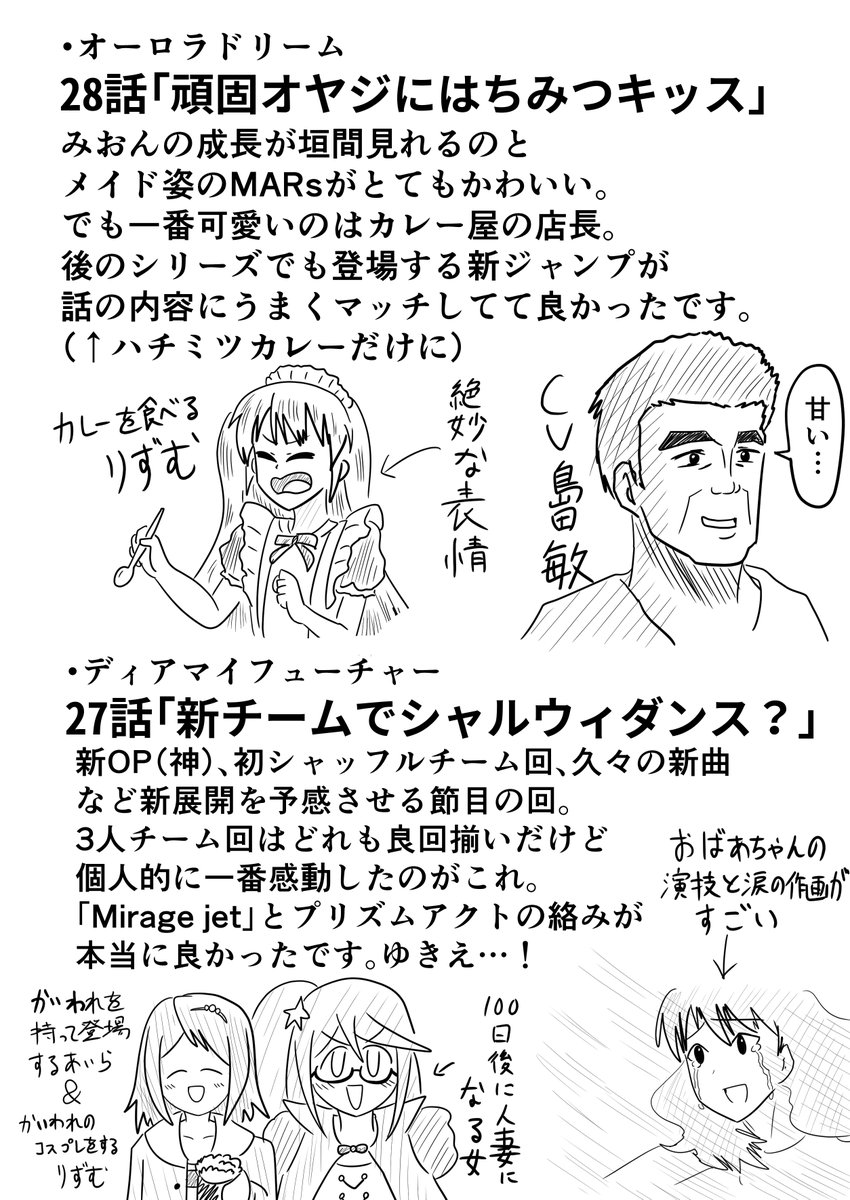 ・オーロラドリーム
28話「頑固オヤジにはちみつキッス」
みおんの成長が垣間見れるのと
メイド姿のMARsがとてもかわいい。
でも一番可愛いのはカレー屋の店長。
後のシリーズでも登場する新ジャンプが
話の内容にうまくマッチしてて良かったです。
(↑ハチミツカレーだけに)
カレーを食べる
りずむ
絶妙な表情
CV島田敏
甘い…
・ディアマイフューチャー
27話「新チームでシャルウィダンス？」
新OP(神)、初シャッフルチーム回、久々の新曲
など新展開を予感させる節目の回。
3人チーム回はどれも良回揃いだけど
個人的に一番感動したのがこれ。
「Mirage jet」とプリズムアクトの絡みが
本当に良かったです。ゆきえ…！
おばあちゃんの
演技と涙の作画が
すごい
かいわれを
持って登場
するあいら
&
かいわれの
コスプレをする
りずむ
100日後に人妻に
なる女